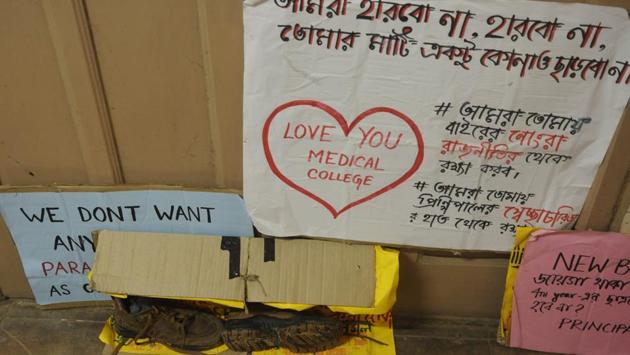 আমরা হারবো না, হারবো না,
তোমার মাটি একটু কোনাও ছাড়বো না
LOVE YOU
MEDICAL
COLLEGE
# আমরা তোমায়
বাইরের নোংরা
রাজনীতির থেকে
রক্ষা করব,
# আমরা তোমায়
প্রিন্সিপালের স্বেচ্ছাচারিতা
র হাত থেকে
WE DONT WANT
ANY
PARA
AS
NEW B
জায়গা থাকা
4th year-এর ছাত্র
হবে না?
PRINCIPA